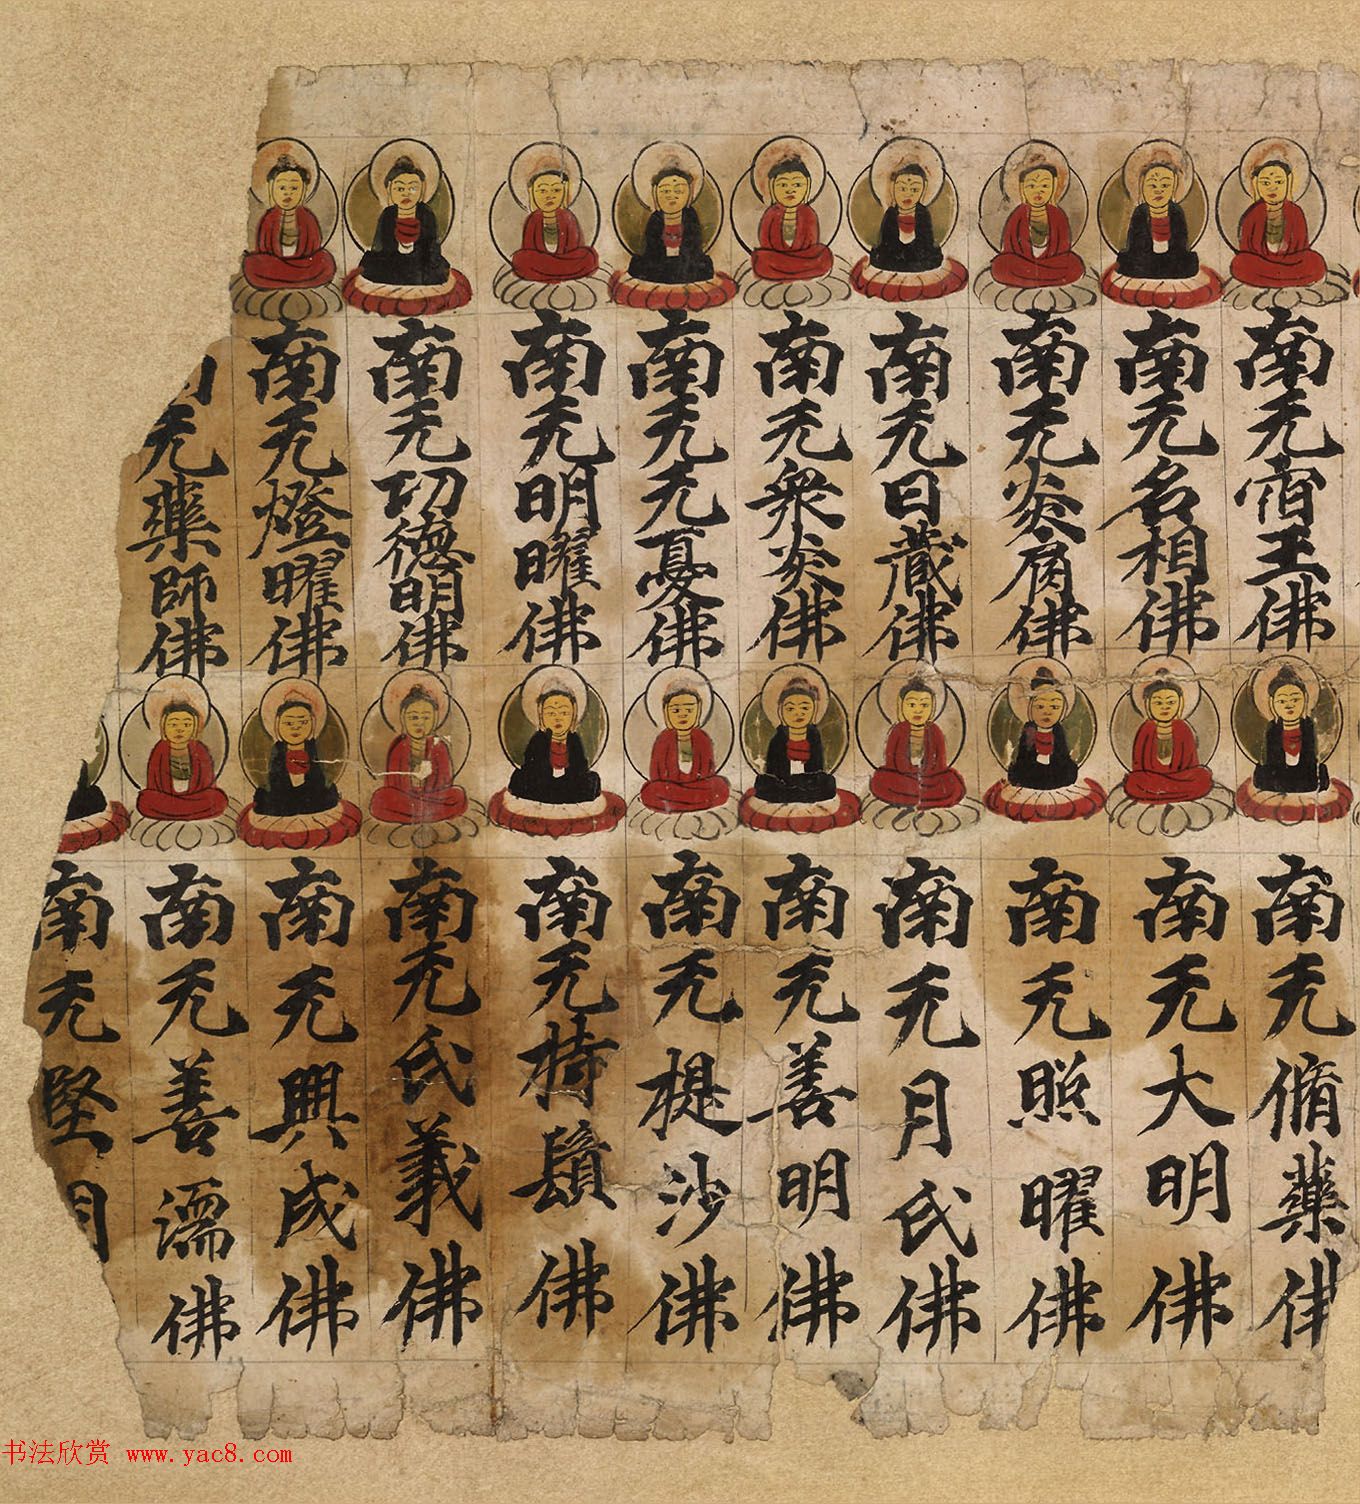 南无宿王佛
南无名相佛
南无炎肩佛
南无日藏佛
南无衆炎佛
南无无憂佛
南无明曜佛
南无功德明佛
南无燈曜佛
南无藥師佛
南无脩藥佛
南无大明佛
南无照曜佛
南无月氏佛
南无善明佛
南无提沙佛
南无持鬚佛
南无氏義佛
南无興成佛
南无善濡佛
南无堅
书法欣赏 www.yac8.com